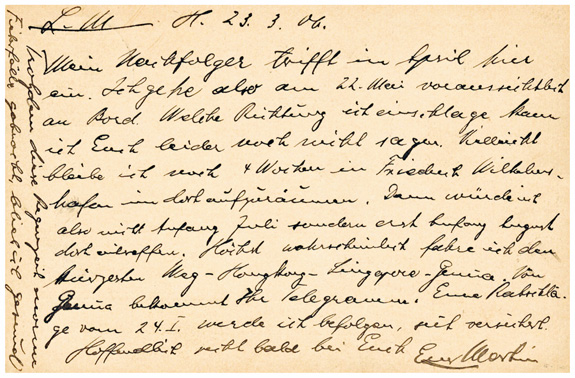 L. M. H. 23. 3. 06.
Mein Nachfolger trifft in April hier
ein. Ich gehe also am 22. Mai voraussichtlich
an Bord. Welche Richtung ich einschlage kann
ich Euch leider noch nicht sagen. Vielleicht
bleibe ich noch 4 Wochen in Friedrich Wilhelms-
hafen um dort aufzuräumen. Dann würde ich
also nicht Anfang Juli sondern erst Anfang August
dort eintreffen. Höchst wahrscheinlich fahre ich den
kürzesten Weg - Hongkong - Singapore - Genua. Von
Genua bekommt Ihr Telegramm. Eure Ratschlä-
ge vom 24. I. werde ich befolgen, seid versichert.
Hoffendlich recht bald bei Euch Euer Martin
Trotzdem diese Regenzeit enorme
Fieberfälle gebracht, blieb ich gesund